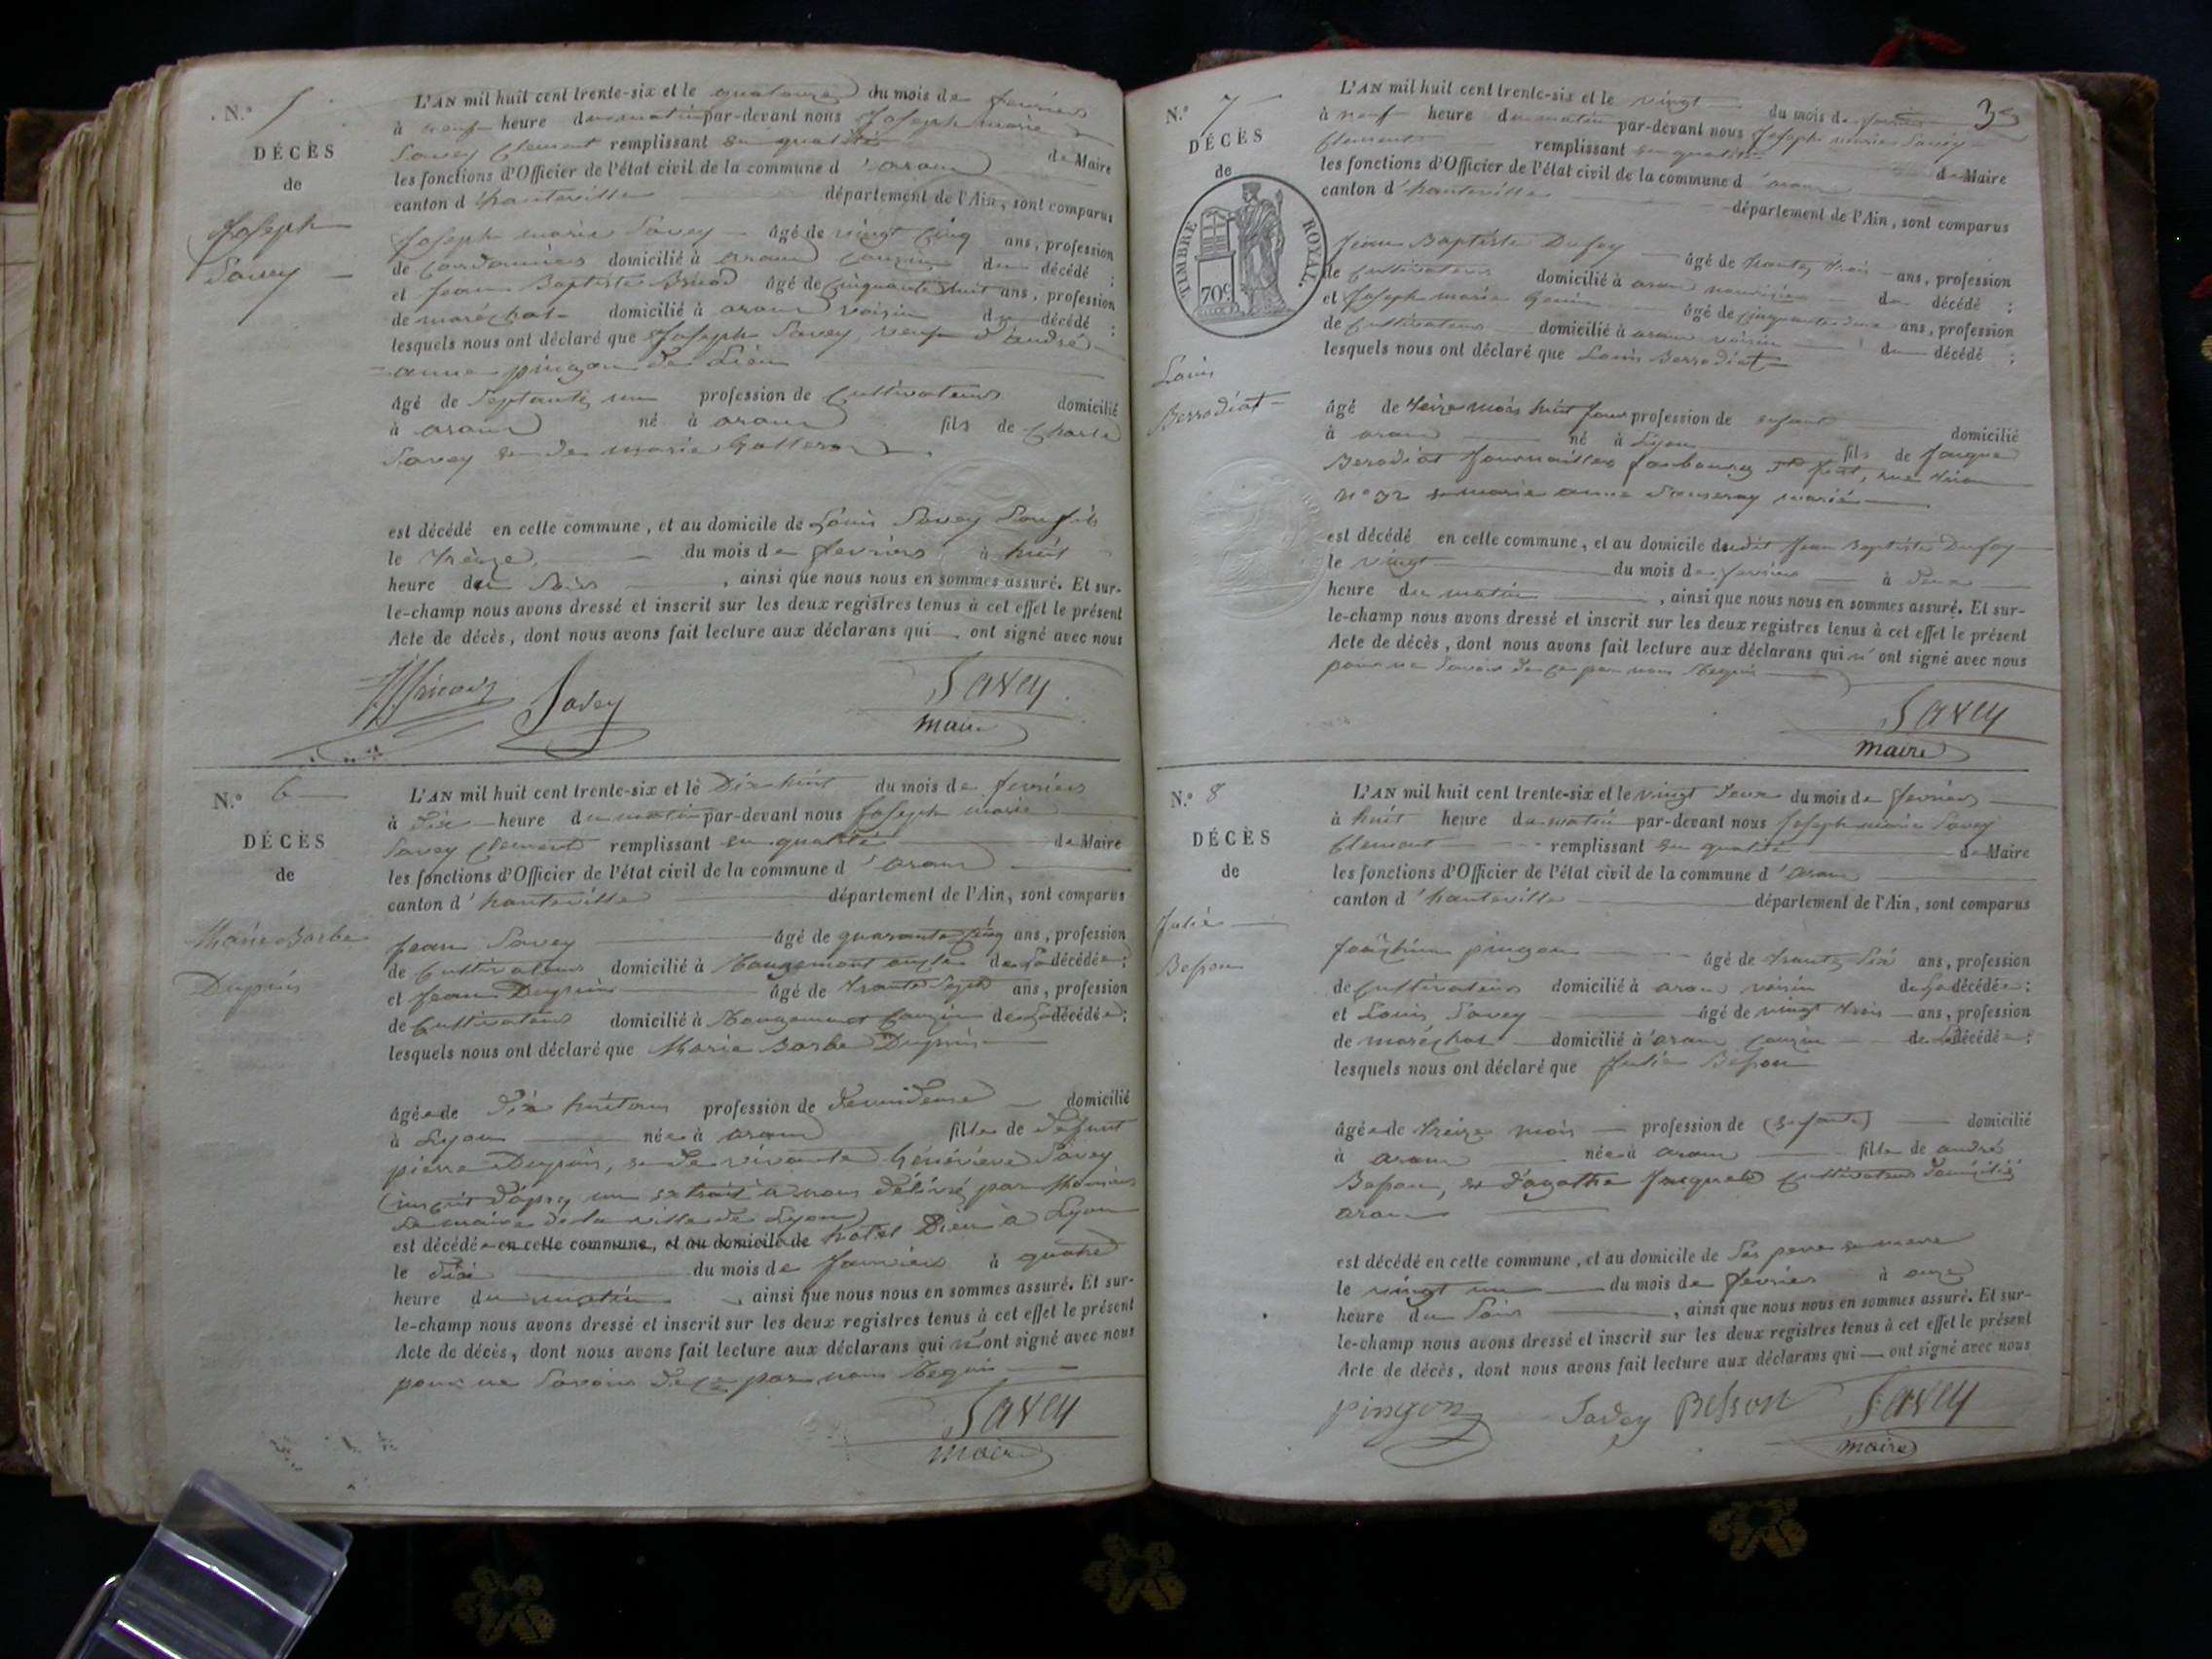 N.° 5
DÉCÈS
de
Joseph
Savey
L'AN mil huit cent trente-six et le quatorze du mois de fevriers
à neuf heure du matin par-devant nous Joseph marie
Savey Clement remplissant en qualité de Maire
les fonctions d'Officier de l'état civil de la commune d'aran
canton d'hauteville département de l'Ain, sont comparus
Joseph marie Savey âgé de vingt cinq ans, profession
de Cordonniers domicilié à aran couzin du décédé ;
et Jean Baptiste âgé de Cinquante huit ans, profession
de maréchal domicilié à aran voisin du décédé ;
lesquels nous ont déclaré que Joseph Savey, veuf d'andré
anne pingon de Lieu
âgé de Septante un profession de Cultivateurs domicilié
à aran né à aran fils de Charle
Savey & de marie
est décédé en cette commune, et au domicile de Louis Savey Son fils
le Treize du mois de fevriers à huit
heure du Soirs, ainsi que nous nous en sommes assuré. Et sur-
le-champ nous avons dressé et inscrit sur les deux registres tenus à cet effet le présent
Acte de décès, dont nous avons fait lecture aux déclarans qui ont signé avec nous
Savey Savey
maire
N.° 6
DÉCÈS
de
Marie Barbe
Dupuis
L'AN mil huit cent trente-six et le Dix huit du mois de fevriers
à dix heure du matin par-devant nous Joseph marie
Savey Clement remplissant en qualité de Maire
les fonctions d'Officier de l'état civil de la commune d'aran
canton d'hauteville département de l'Ain, sont comparus
Jean Savey âgé de quarante cinq ans, profession
de Cultivateurs domicilié à Rougemont oncle de La décédée ;
et Jean Dupuis âgé de trante Sept ans, profession
de Cultivateurs domicilié à Rougemont Couzin de La décédée ;
lesquels nous ont déclaré que Marie Barbe Dupuis
âgée de dix huit ans profession de devideuse domicilié
à Lyon née à aran fille de defunt
pierre Dupuis, & de vivante Généviéve Savey
(inscrit d'après un extrait a nous délivré par Monsieur
Le maire de la ville de Lyon)
est décédée en cette commune, et au domicile de hotel Dieu a Lyon
le dix du mois de Janviers à quatre
heure du matin, ainsi que nous nous en sommes assuré. Et sur-
le-champ nous avons dressé et inscrit sur les deux registres tenus à cet effet le présent
Acte de décès, dont nous avons fait lecture aux déclarans qui n'ont signé avec nous
pour ne Savoir de ce par nous Requis
Savey
maire
35
N.° 7
DÉCÈS
de
TIMBRE ROYAL.
70c
Louis
Berrodiat
L'AN mil huit cent trente-six et le vingt du mois de fevriers
à neuf heure du matin par-devant nous Joseph marie Savey
Clement remplissant en qualité de Maire
les fonctions d'Officier de l'état civil de la commune d'aran
canton d'hauteville département de l'Ain, sont comparus
Jean Baptiste Dufey âgé de trante trois ans, profession
de Cultivateurs domicilié à aran nourricier du décédé ;
et Joseph marie âgé de Cinquante ans, profession
de Cultivateurs domicilié à aran voisin du décédé ;
lesquels nous ont déclaré que Louis Berrodiat
âgé de treize mois huit jour profession de enfant domicilié
à aran né à Lyon fils de Jacque
Berodiat Journailler faubourg St Just, rue trion
n° 32 & marie anne mariés
est décédé en cette commune, et au domicile dudit Jean Baptiste Dufey
le vingt du mois de fevrier à deux
heure du matin, ainsi que nous nous en sommes assuré. Et sur-
le-champ nous avons dressé et inscrit sur les deux registres tenus à cet effet le présent
Acte de décès, dont nous avons fait lecture aux déclarans qui n'ont signé avec nous
pour ne Savoir de ce par nous Requis
Savey
maire
N.° 8
DÉCÈS
de
Julie
Besson
L'AN mil huit cent trente-six et le vingt deux du mois de fevriers
à huit heure du matin par-devant nous Joseph marie Savey
Clement remplissant en qualité de Maire
les fonctions d'Officier de l'état civil de la commune d'aran
canton d'hauteville département de l'Ain, sont comparus
Joachim pingon âgé de trante Six ans, profession
de Cultivateurs domicilié à aran voisin de La décédée ;
et Louis Savey âgé de vingt trois ans, profession
de maréchal domicilié à aran couzin de La décédée ;
lesquels nous ont déclaré que Julie Besson
âgée de treize mois profession de (enfante) domicilié
à aran née à aran fille de andré
Besson, & d'agathe Jacquet Cultivateurs domicilié
aran
est décédé en cette commune, et au domicile de Ses pere & mere
le vingt un du mois de fevrier à onze
heure du Soir, ainsi que nous nous en sommes assuré. Et sur-
le-champ nous avons dressé et inscrit sur les deux registres tenus à cet effet le présent
Acte de décès, dont nous avons fait lecture aux déclarans qui ont signé avec nous
pingon Savey Besson Savey
maire